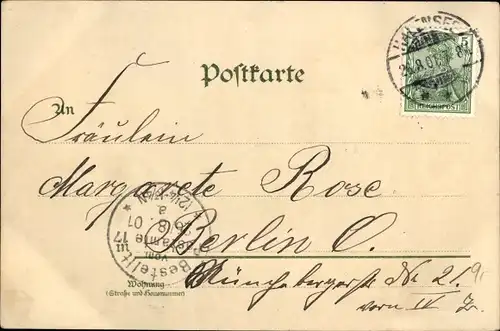 Postkarte
An
Fräulein
Margarete Rose.
Berlin O.
Münchebergerstraße No 21.
vorn IV Tr.
Wohnung
(Straße und Hausnummer)
HALENSEE
5
REICHSPOST
Bestellt
vom
Postamte
17